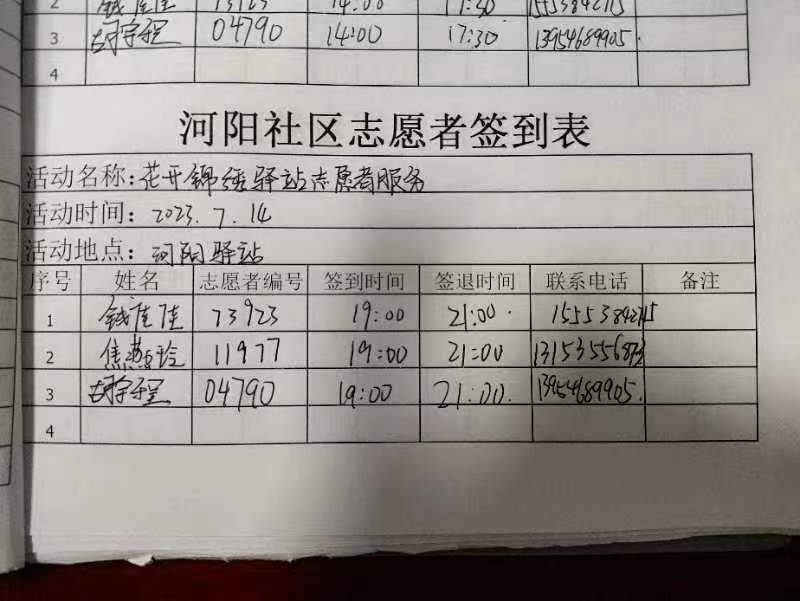 2 钱佳佳 73923 14:00 17:30
3 胡宇程 04790 14:00 17:30 13954689905.
4
河阳社区志愿者签到表
活动名称:花开锦绣驿站志愿者服务
活动时间: 2023.7.14
活动地点: 河阳驿站
序号 姓名 志愿者编号 签到时间 签退时间 联系电话 备注
1 钱佳佳 73923 19:00 21:00.
2 焦燕玲 11977 19:00 21:00
3 胡宇程 04790 19:00 21:00. 13954689905.
4